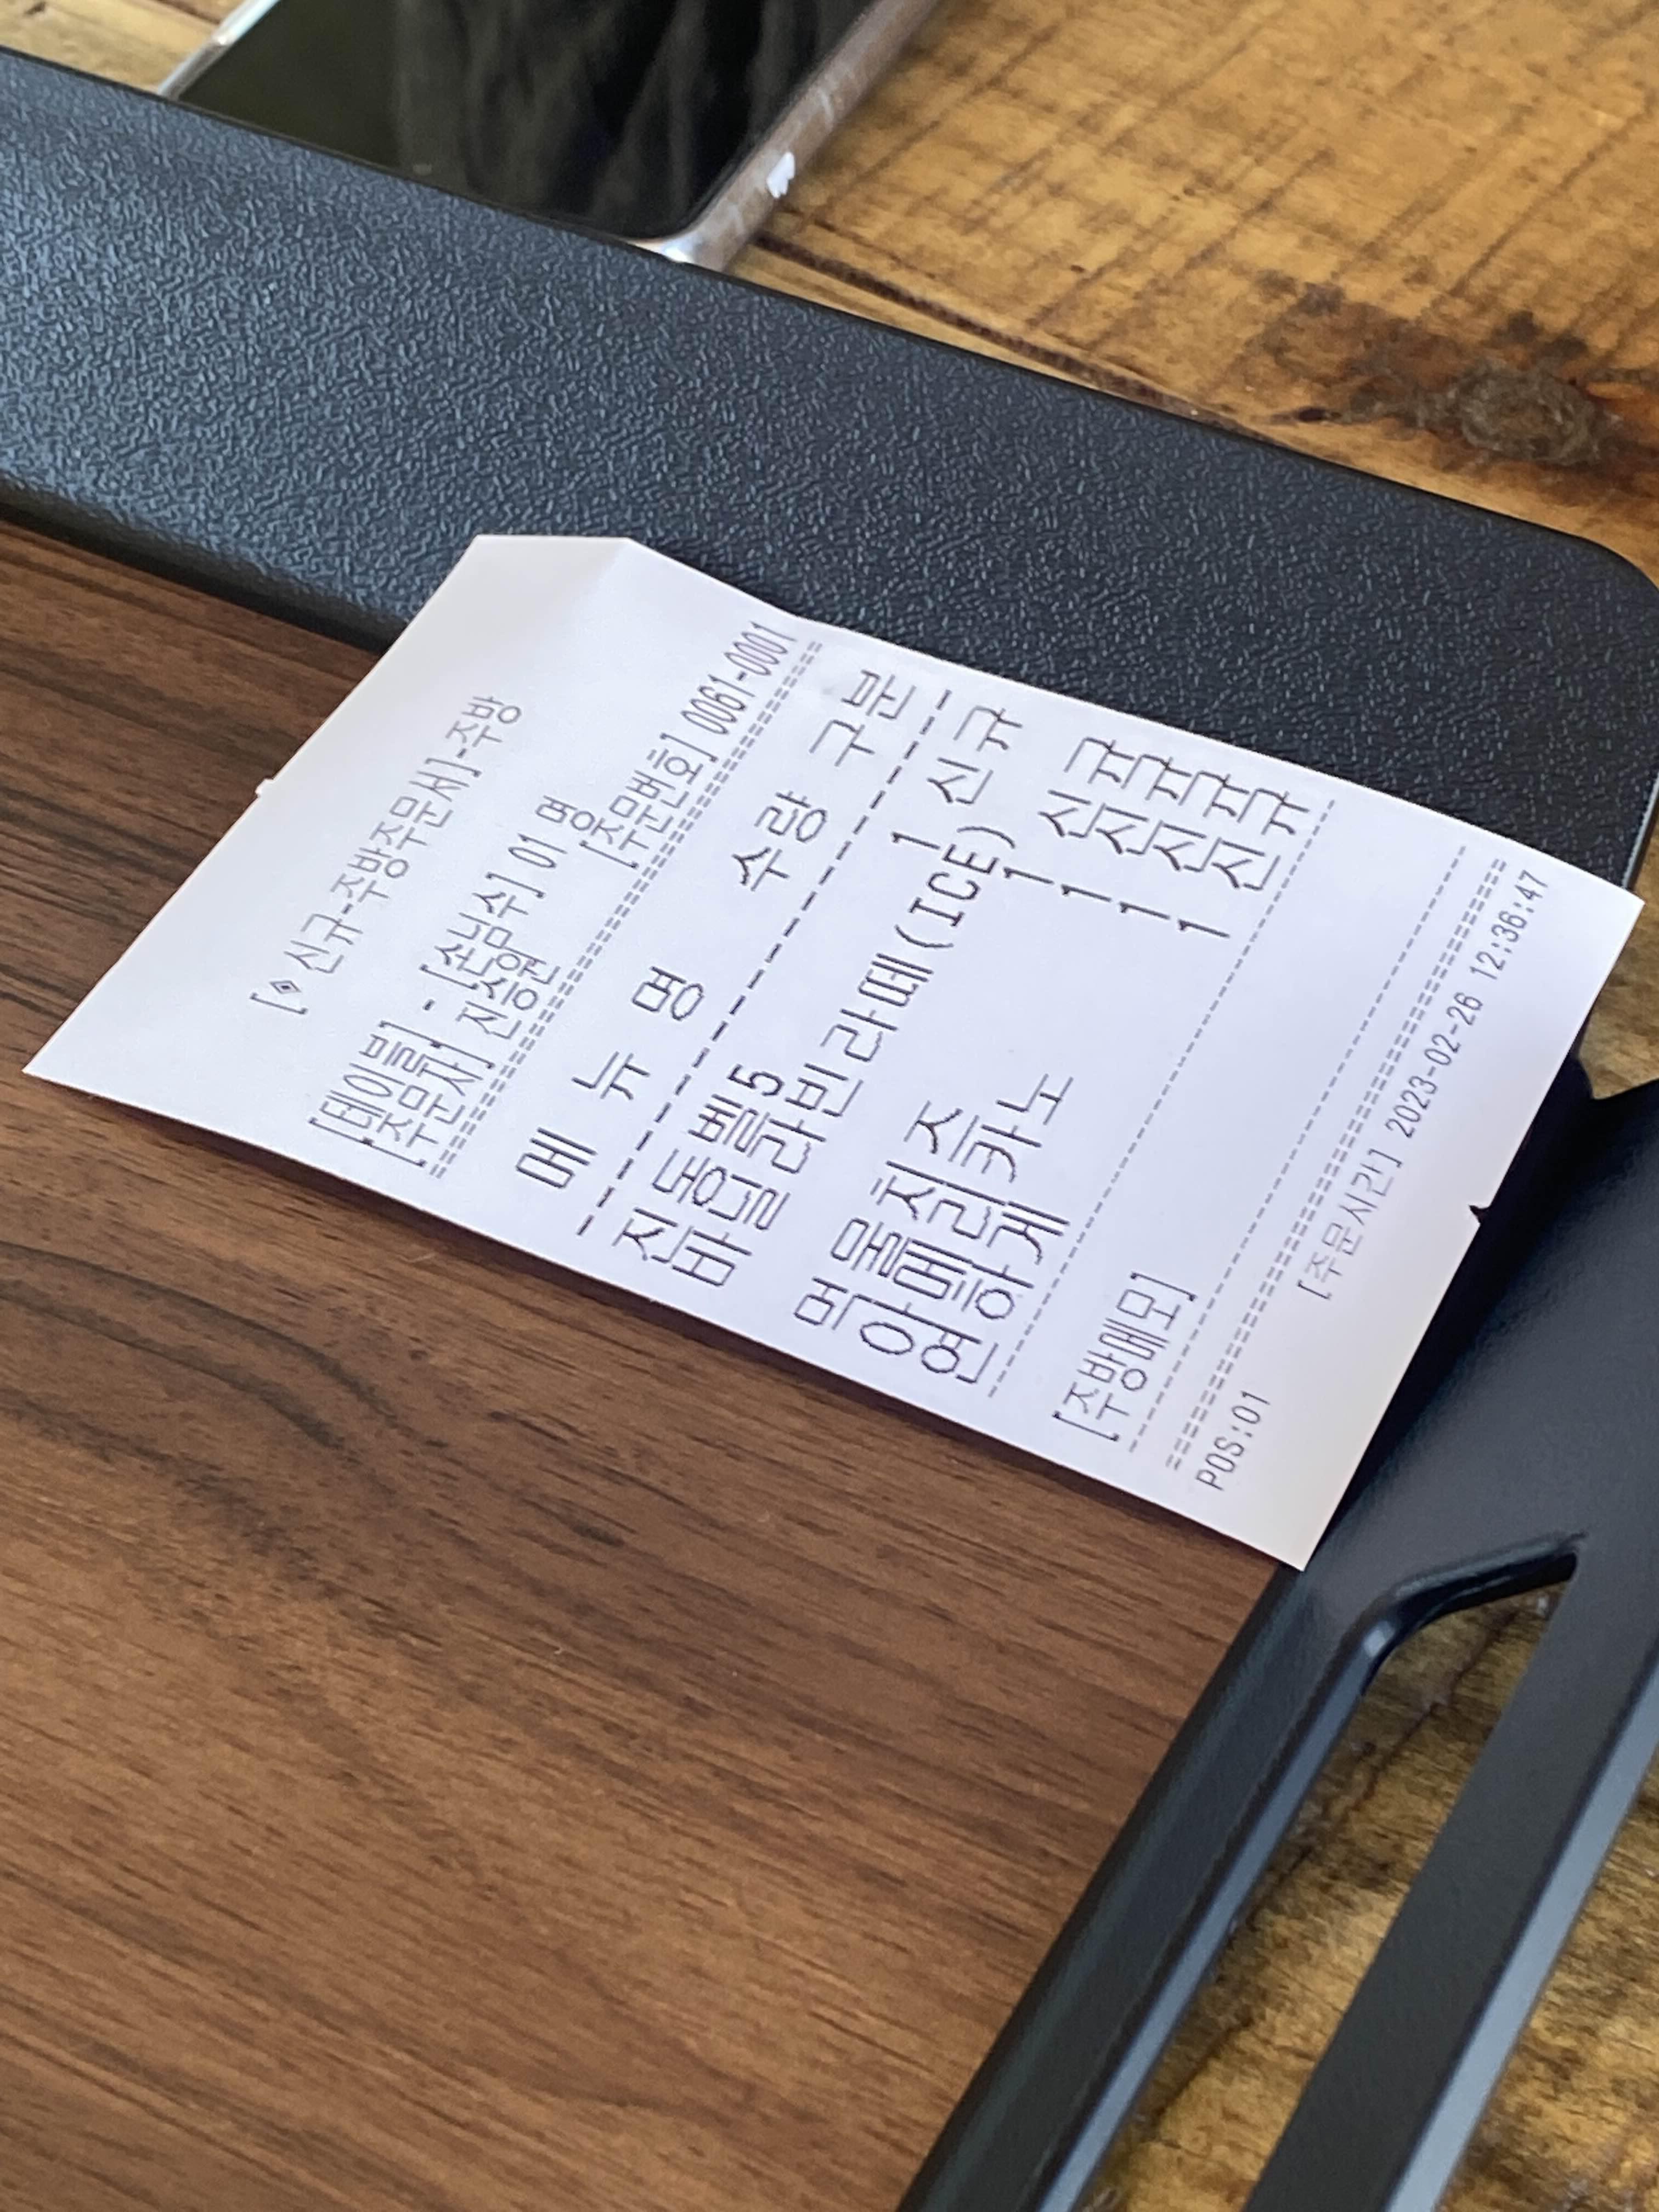 [◈ 신규-주방주문서]-주방
[테이블] - [손님수] 01 명
[주문자] 진승원 [주문번호] 0061-0001
메 뉴 명 수량 구분
진동벨5 1 신규
바닐라빈라떼(ICE) 1 신규
먹물치즈 1 신규
아메리카노 1 신규
연하게 1 신규
[주방메모]
POS:01 [주문시간] 2023-02-26 12:36:47